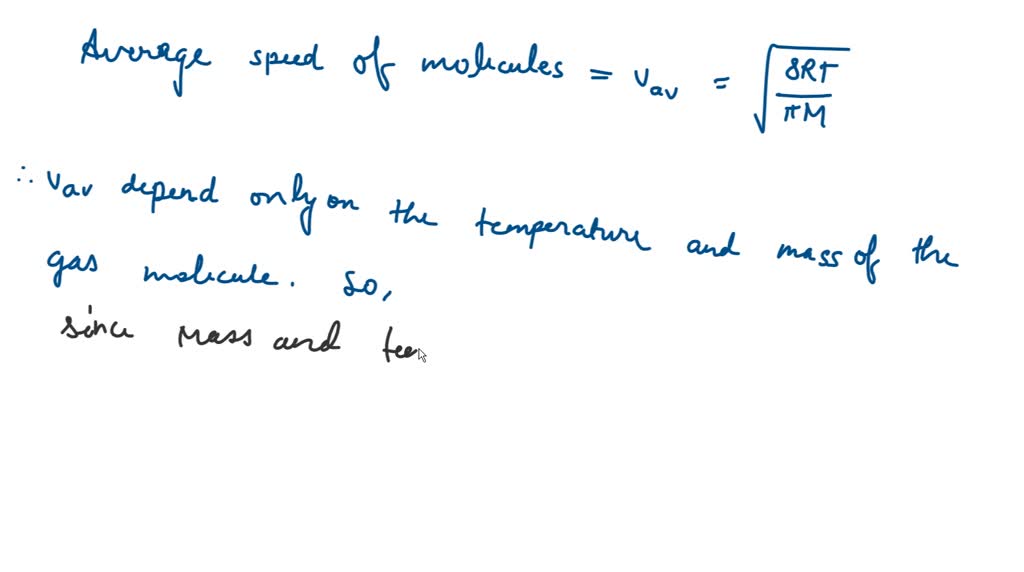 Average speed of molecules = vav = √8RT/πM
∴ vav depend only on the temperature and mass of the
gas molecule. So,
since mass and tem